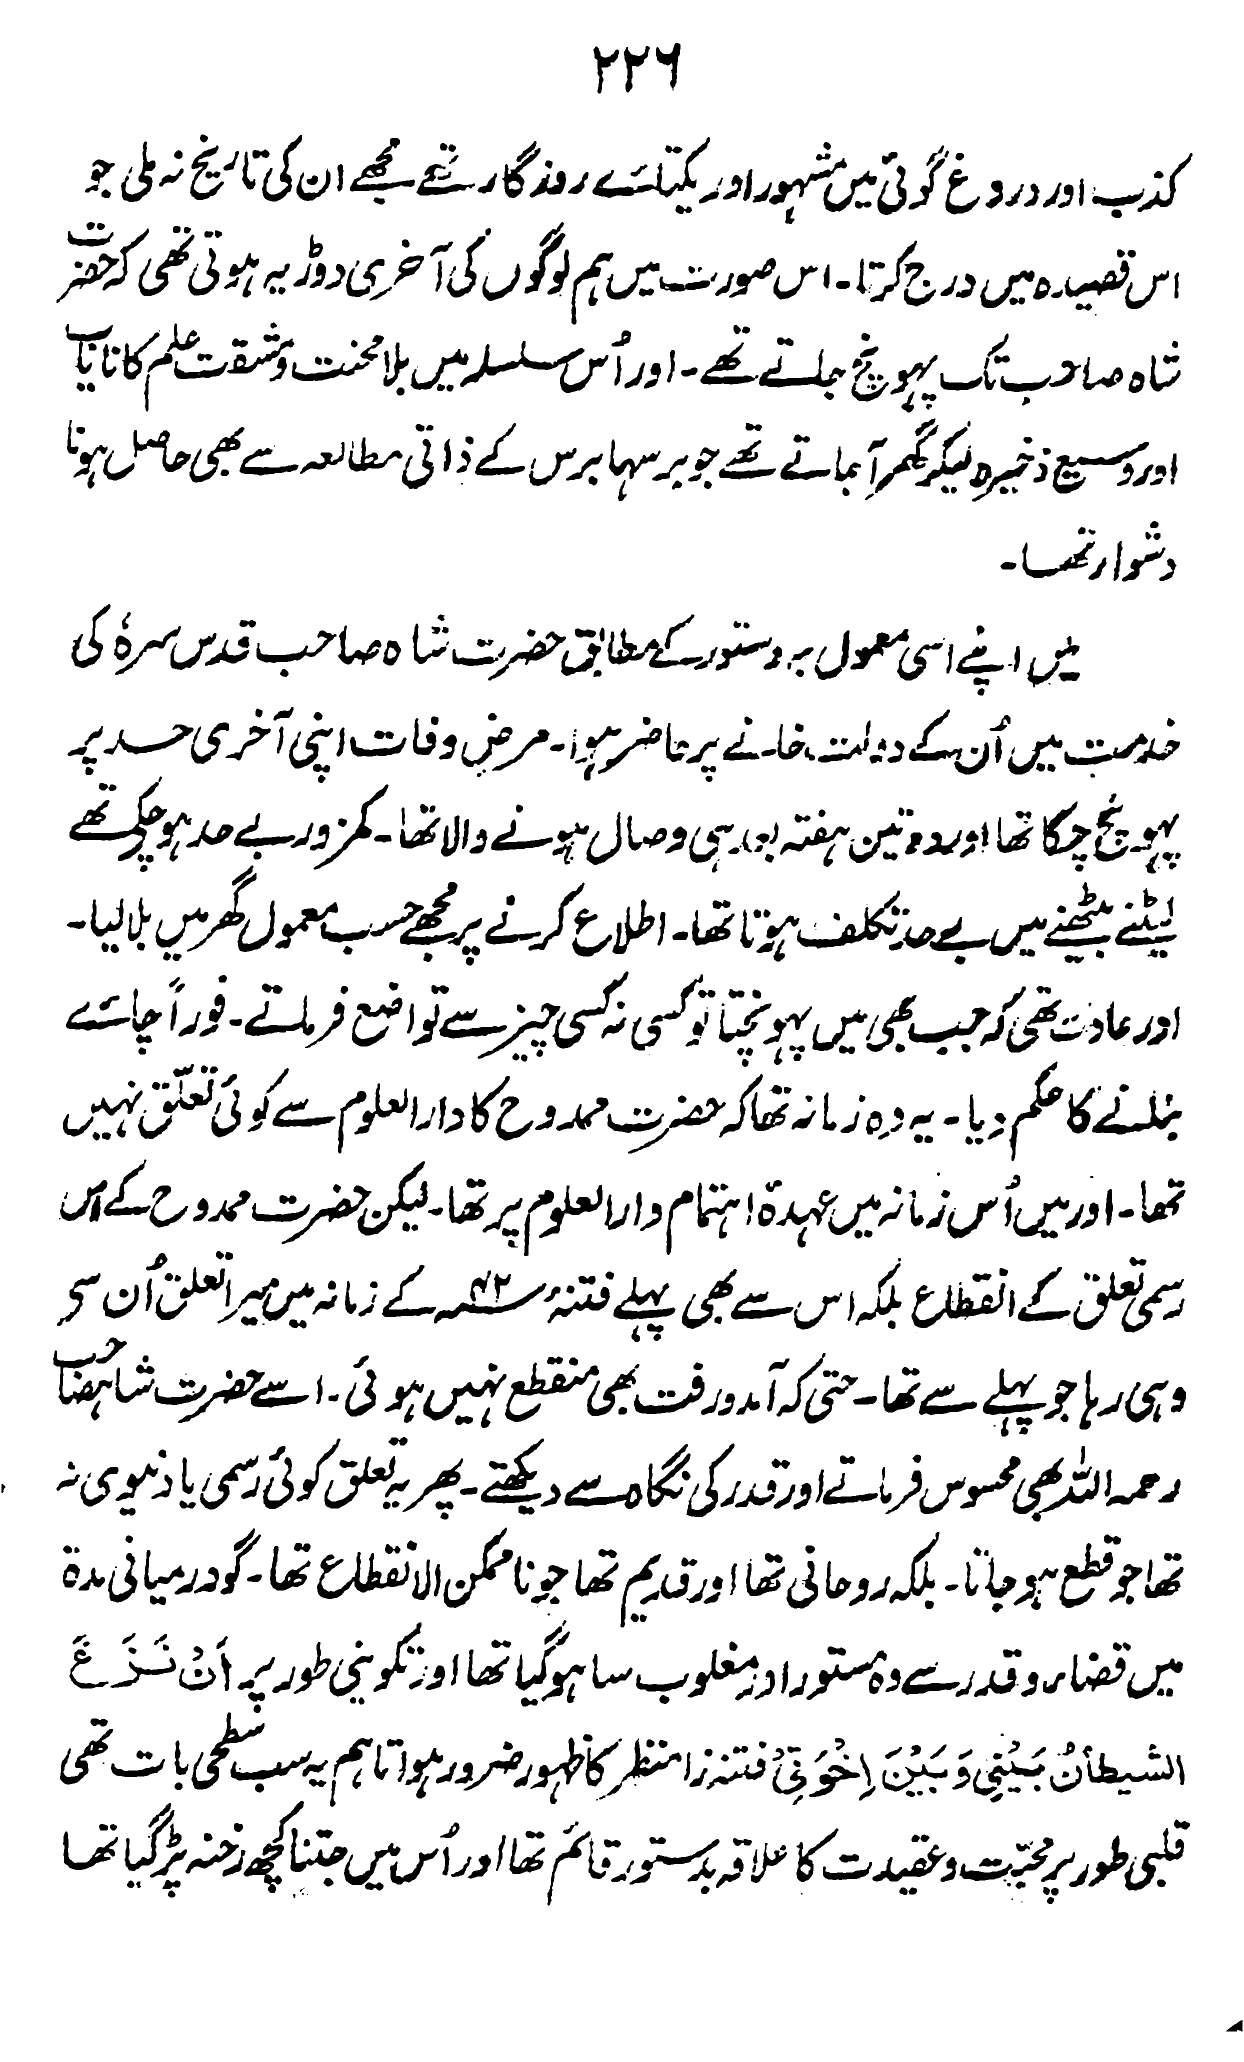 ۲۲۶
کذب اور دروغ گوئی میں مشہور اور یکتائے روزگار تھے مجھے ان کی تاریخ نہ ملی جو
اس قصیدہ میں درج کرتا۔ اس صورت میں ہم لوگوں کی آخری دوڑ یہ ہوتی تھی کہ حضرت
شاہ صاحب تک پہونچ جاتے تھے۔ اور اُس سلسلہ میں بلا محنت و مشقت علم کا نایاب
اور وسیع ذخیرہ لیکر گھر آجاتے تھے جو برسہا برس کے ذاتی مطالعہ سے بھی حاصل ہونا
دشوار تھا۔
میں اپنے اسی معمول بہ دستور کے مطابق حضرت شاہ صاحب قدس سرہٗ کی
خدمت میں اُن کے دولت خانے پر حاضر ہوا۔ مرض وفات اپنی آخری حد پر
پہونچ چکا تھا اور دو تین ہفتہ بعد ہی وصال ہونے والا تھا۔ کمزور بے حد ہوچکے تھے
لیٹنے بیٹھنے میں بے حد تکلف ہوتا تھا۔ اطلاع کرنے پر مجھے حسب معمول گھر میں بلا لیا۔
اور عادت تھی کہ جب بھی میں پہونچتا تو کسی نہ کسی چیز سے تواضع فرماتے۔ فوراً چائے
بنانے کا حکم دیا۔ یہ وہ زمانہ تھا کہ حضرت ممدوح کا دار العلوم سے کوئی تعلّق نہیں
تھا۔ اور میں اُس زمانہ میں عہدۂ اہتمام دار العلوم پر تھا۔ لیکن حضرت ممدوح کے اس
رسمی تعلق کے انقطاع بلکہ اس سے بھی پہلے فتنۂ ۴۲ھ کے زمانہ میں میرا تعلق اُن سے
وہی رہا جو پہلے سے تھا۔ حتی کہ آمد و رفت بھی منقطع نہیں ہوئی۔ اسے حضرت شاہصاحب
رحمہ اللہ بھی محسوس فرماتے اور قدر کی نگاہ سے دیکھتے۔ پھر یہ تعلق کوئی رسمی یا دنیوی نہ
تھا جو قطع ہو جاتا۔ بلکہ روحانی تھا اور قدیم تھا جو ناممکن الانقطاع تھا۔ گو درمیانی مدۃ
میں قضاء و قدر سے وہ مستور اور مغلوب سا ہوگیا تھا اور تکوینی طور پر أَنْ نَزَغَ
الشیطانُ بَیْنِی وَبَیْنَ اِخْوَتِیْ فتنہ زا منظر کا ظہور ضرور ہوا تاہم یہ سب سطحی بات تھی
قلبی طور پر محبّت و عقیدت کا علاقہ بدستور قائم تھا اور اُس میں جتنا کچھ رخنہ پڑ گیا تھا